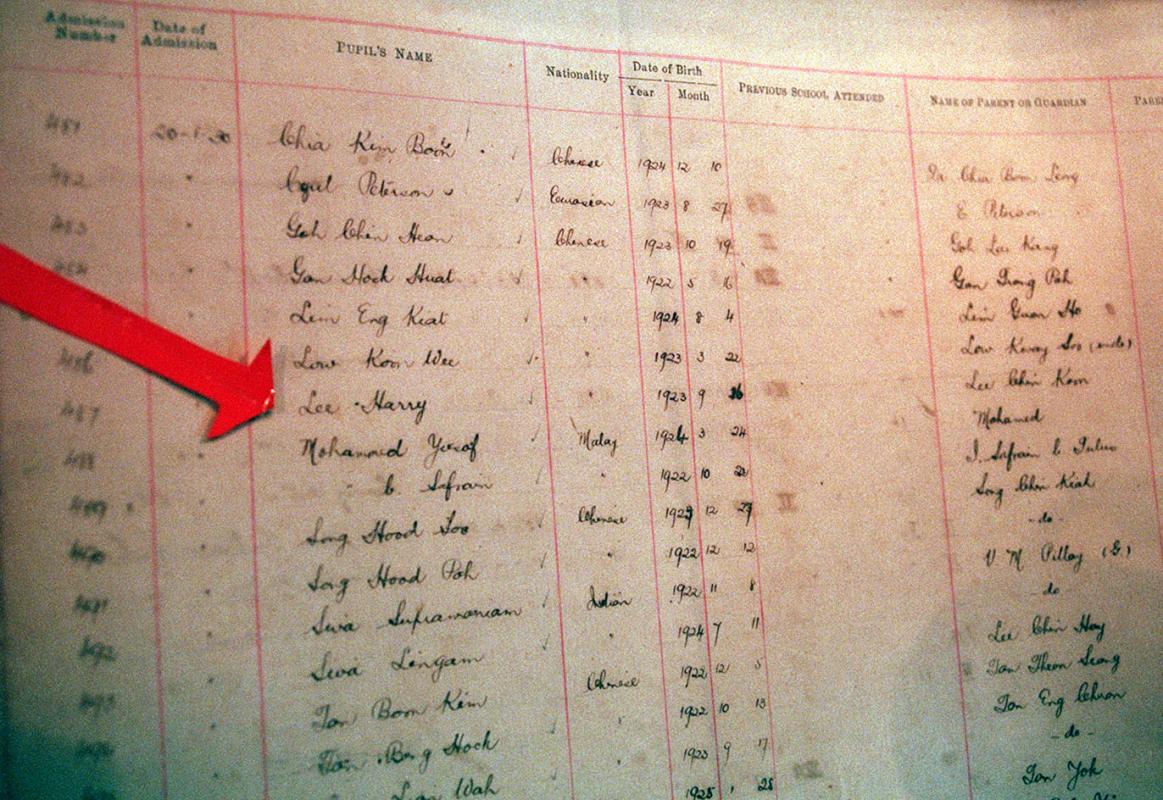 Admission Number Date of Admission PUPIL'S NAME Nationality Date of Birth Year Month PREVIOUS SCHOOL ATTENDED NAME OF PARENT OR GUARDIAN
481 20-1-30 Chia Kim Boon Chinese 1924 12 10 Dr Chia Boon Leong
482 " Cyril Peterson Eurasian 1923 8 27 E Peterson
483 " Goh Chin Hean Chinese 1923 10 19 Goh Lai Kang
484 " Gan Hock Huat " 1922 5 16 Gan Tiong Poh
Lim Eng Kiat " 1924 8 4 Lim Guan Ho
486 Low Koon Wee " 1923 3 22 Low Kway Soo
487 Lee Harry " 1923 9 16 Lee Chin Koon
488 " Mohammed Yusof Malay 1924 3 24 Mohamed
489 " " b. Safrain " 1922 10 I. Safrain b.
490 " Song Hood Soo Chinese 12 Song Chin Kiah
491 " Song Hood Poh " 1922 12 12 - do -
492 " Siva Supramaniam Indian 1922 11 8 V M Pillay (G.)
493 " Siva Lingam " 1924 7 11 - do -
Tan Boon Kim Chinese 1922 12 5 Lee Chin Hoy
Tan Beng Hock " 1922 10 13 Tan Theon Seong
Wah 1923 9 7 Tan Eng Chuan
28 - do -
Tan Yok